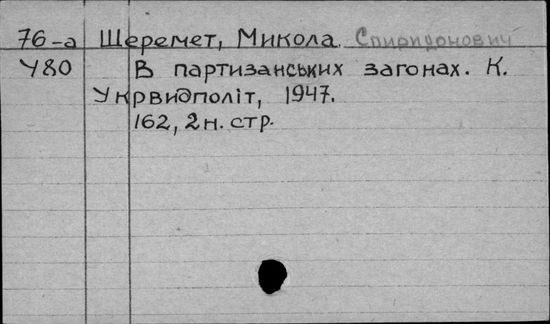 76-а Шеремет, Микола Спиридонович
У80 В партизанських загонах. К.
Укрвидполіт, 1947.
162, 2 н. стр.